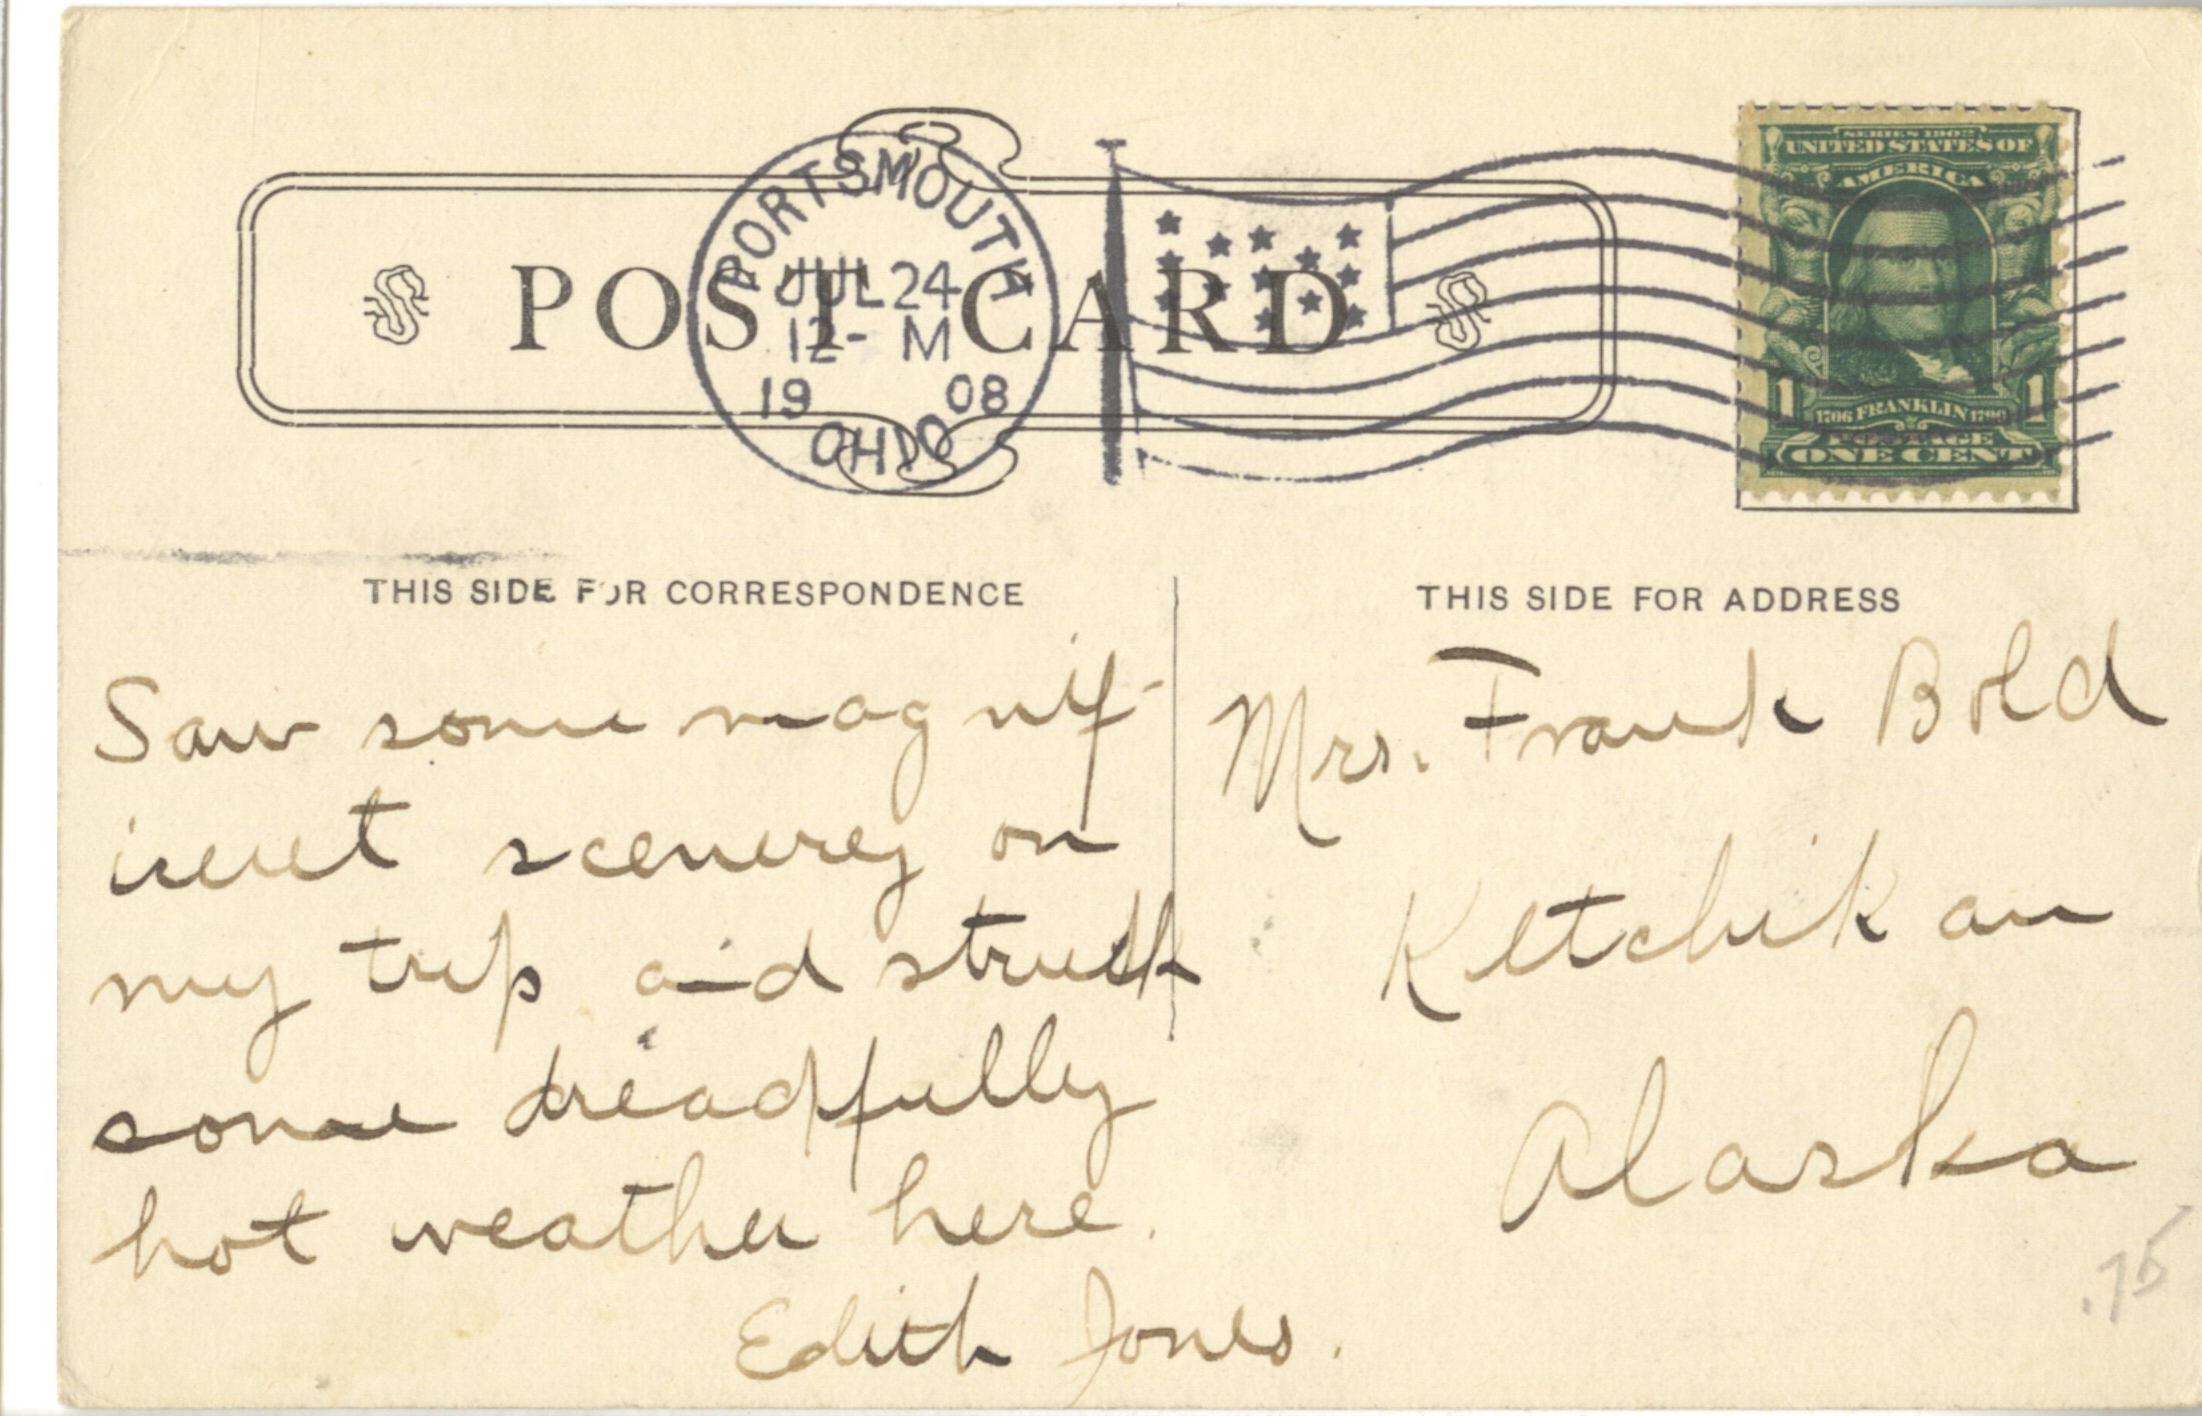 POST CARD
PORTSMOUTH
JUL 24
12- M
19 08
OHIO
SERIES 1902
UNITED STATES OF
AMERICA
1 1
1706 FRANKLIN 1790
POSTAGE
ONE CENT
THIS SIDE FOR CORRESPONDENCE
THIS SIDE FOR ADDRESS
Saw some magnif-
icent scenerey on
my trip and struck
some dreadfully
hot weather here.
Edith Jones.
Mrs. Frank Bold
Ketchikan
Alaska
.75